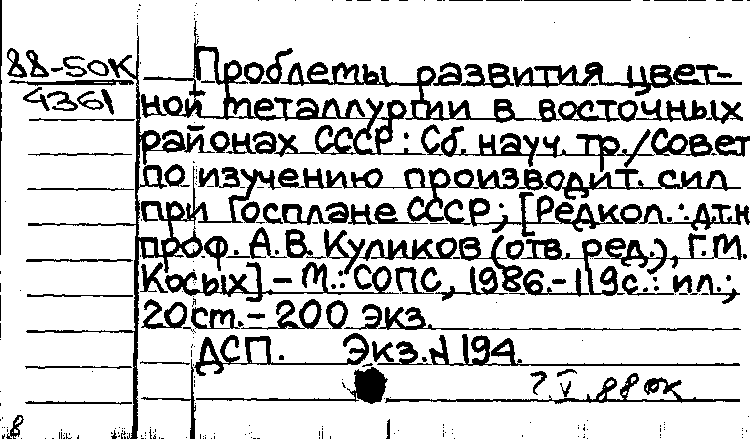 88-50К
4361
Проблемы развития цвет-
ной металлургии в восточных
районах СССР: Сб. науч. тр./Совет
по изучению производит. сил
при Госплане СССР; [Редкол.: д.т.н
проф. А.В. Куликов (отв. ред.), Г.М.
Косых]. – М.: СОПС, 1986. – 119с.: ил.;
20см. – 200 экз.
ДСП. Экз.N 194.
2.V.88 ок
8